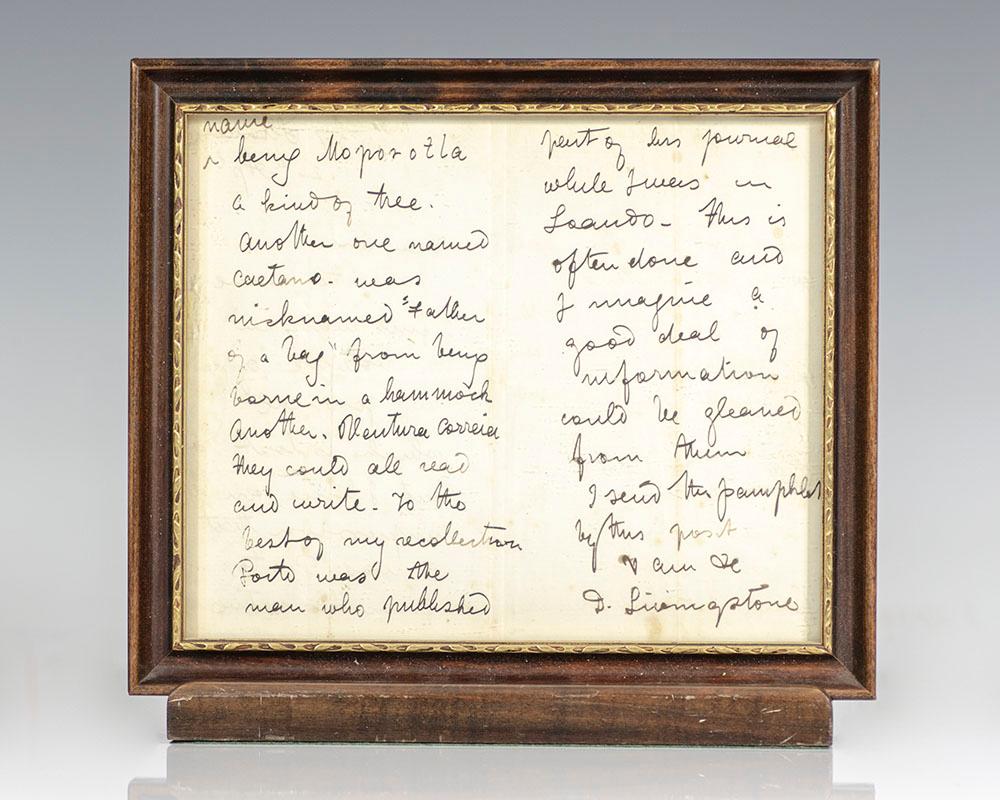 name
being Moporotla
a kind of tree.
Another one named
Caetano. was
nicknamed "Father
of a bag" from being
borne in a hammock
Another. Ventura Correia
They could all read
and write. To the
best of my recollection
Porto was the
man who published
part of his journal
while I was in
Loando - This is
often done and
I imagine a
good deal of
information
could be gleaned
from them
I send the pamphlet
by this post
I am &c
D. Livingstone